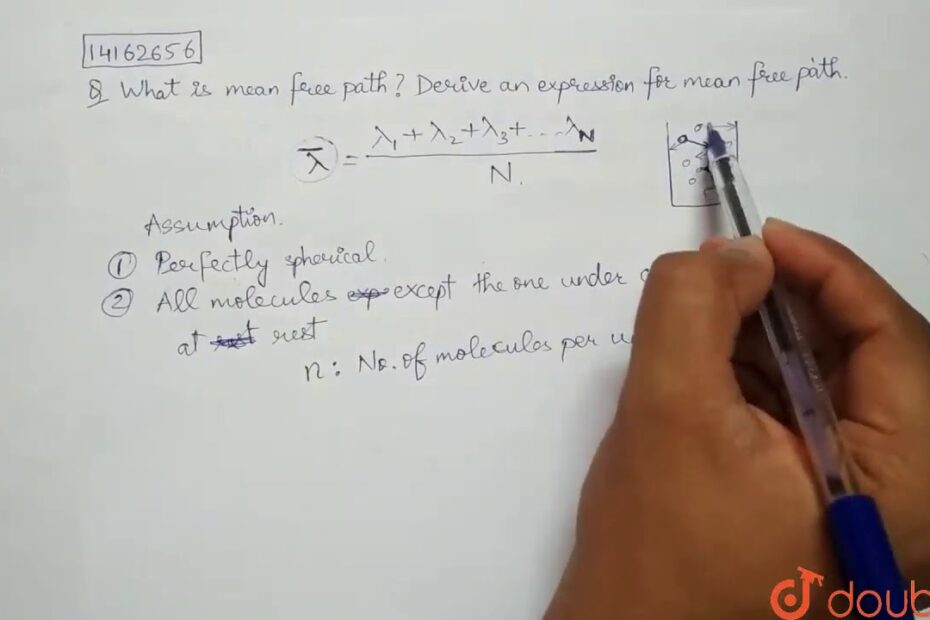 14162656
Q What is mean free path? Derive an expression for mean free path.
λ̅ = λ₁ + λ₂ + λ₃ + ... λN / N.
Assumption.
① Perfectly spherical.
② All molecules except the one under
at rest
n : No. of molecules per
doub